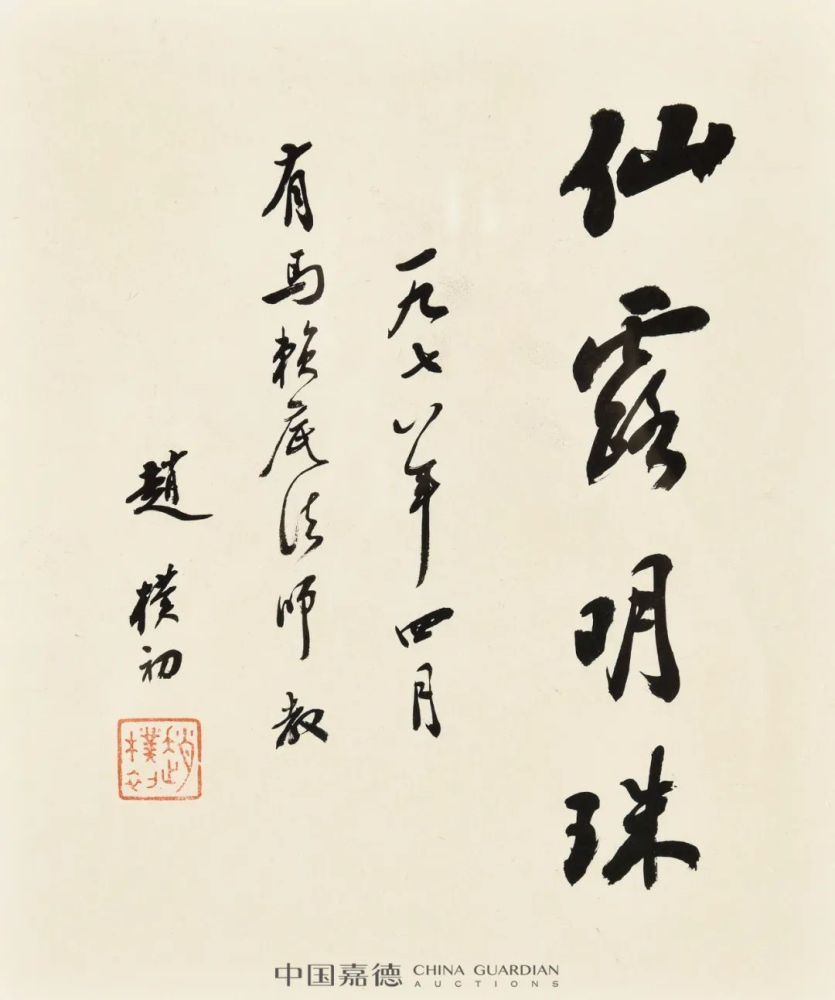 仙露明珠
一九七八年四月
有马赖底法师教
趙樸初
趙樸初
中国嘉德 CHINA GUARDIAN
AUCTIONS